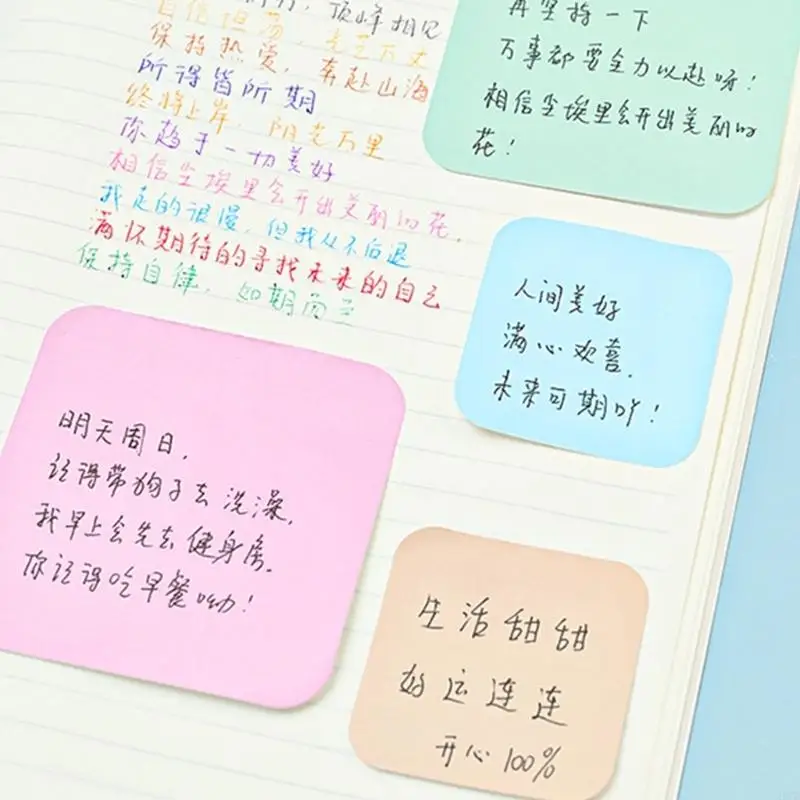 顶峰相见
自信坦荡，光芒万丈
保持热爱，奔赴山海
所得皆所期
终将上岸，阳光万里
你趋于一切美好
相信尘埃里会开出美丽的花，
我走的很慢，但我从不后退
满怀期待的寻找未来的自己
保持自律，如期而至
再坚持一下
万事都要全力以赴呀！
相信尘埃里会开出美丽的
花！
人间美好
满心欢喜，
未来可期吖！
明天周日，
记得带狗子去洗澡，
我早上会先去健身房，
你记得吃早餐呦！
生活甜甜
好运连连
开心100%